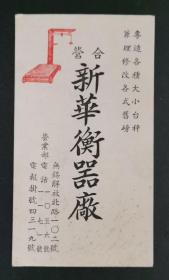 專造各種大小台秤
兼理修改各式舊磅
合營
新華衡器廠
無錫解放北路一〇二號
營業部電話一〇五六號
電報掛號四三一九號